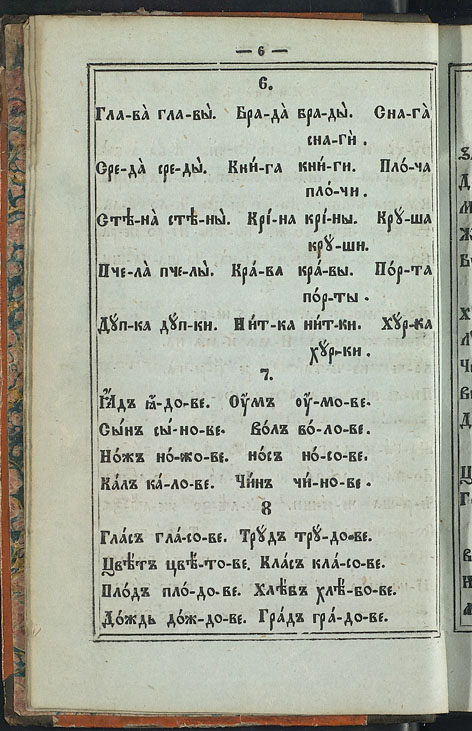 — 6 —
6.
Гла-ва̀ гла-вы̀. Бра-да̀ бра-ды̀. Сна-га̀
сна-гѝ.
Сре-да̀ сре-ды̀. Кни́-га кни́-ги. Пло́-ча
пло́-чи.
Стѣ-на̀ стѣ-ны̀. Крі́-на крі́-ны. Крꙋ́-ша
крꙋ́-ши.
Пче-ла̀ пче-лы̀. Кра́-ва кра́-вы. По́р-та
по́р-ты.
Дꙋ́п-ка дꙋ́п-ки. Ни́т-ка ни́т-ки. Хꙋ́р-ка
хꙋ́р-ки.
7.
Ꙗ҆́дъ ꙗ҆́-до-ве. Оу҆́мъ оу҆́-мо-ве.
Сы́нъ сы́-но-ве. Во́лъ во́-ло-ве.
Но́жъ но́-жо-ве. но́съ но́-со-ве.
Ка́лъ ка́-ло-ве. Чи́нъ чи́-но-ве.
8
Гла́съ гла́-со-ве. Трꙋ́дъ трꙋ́-до-ве.
Цвѣ́тъ цвѣ́-то-ве. Кла́съ кла́-со-ве.
Пло́дъ пло́-до-ве. Хлѣ́бъ хлѣ́-бо-ве.
До́ждь до́ж-до-ве. Гра́дъ гра́-до-ве.